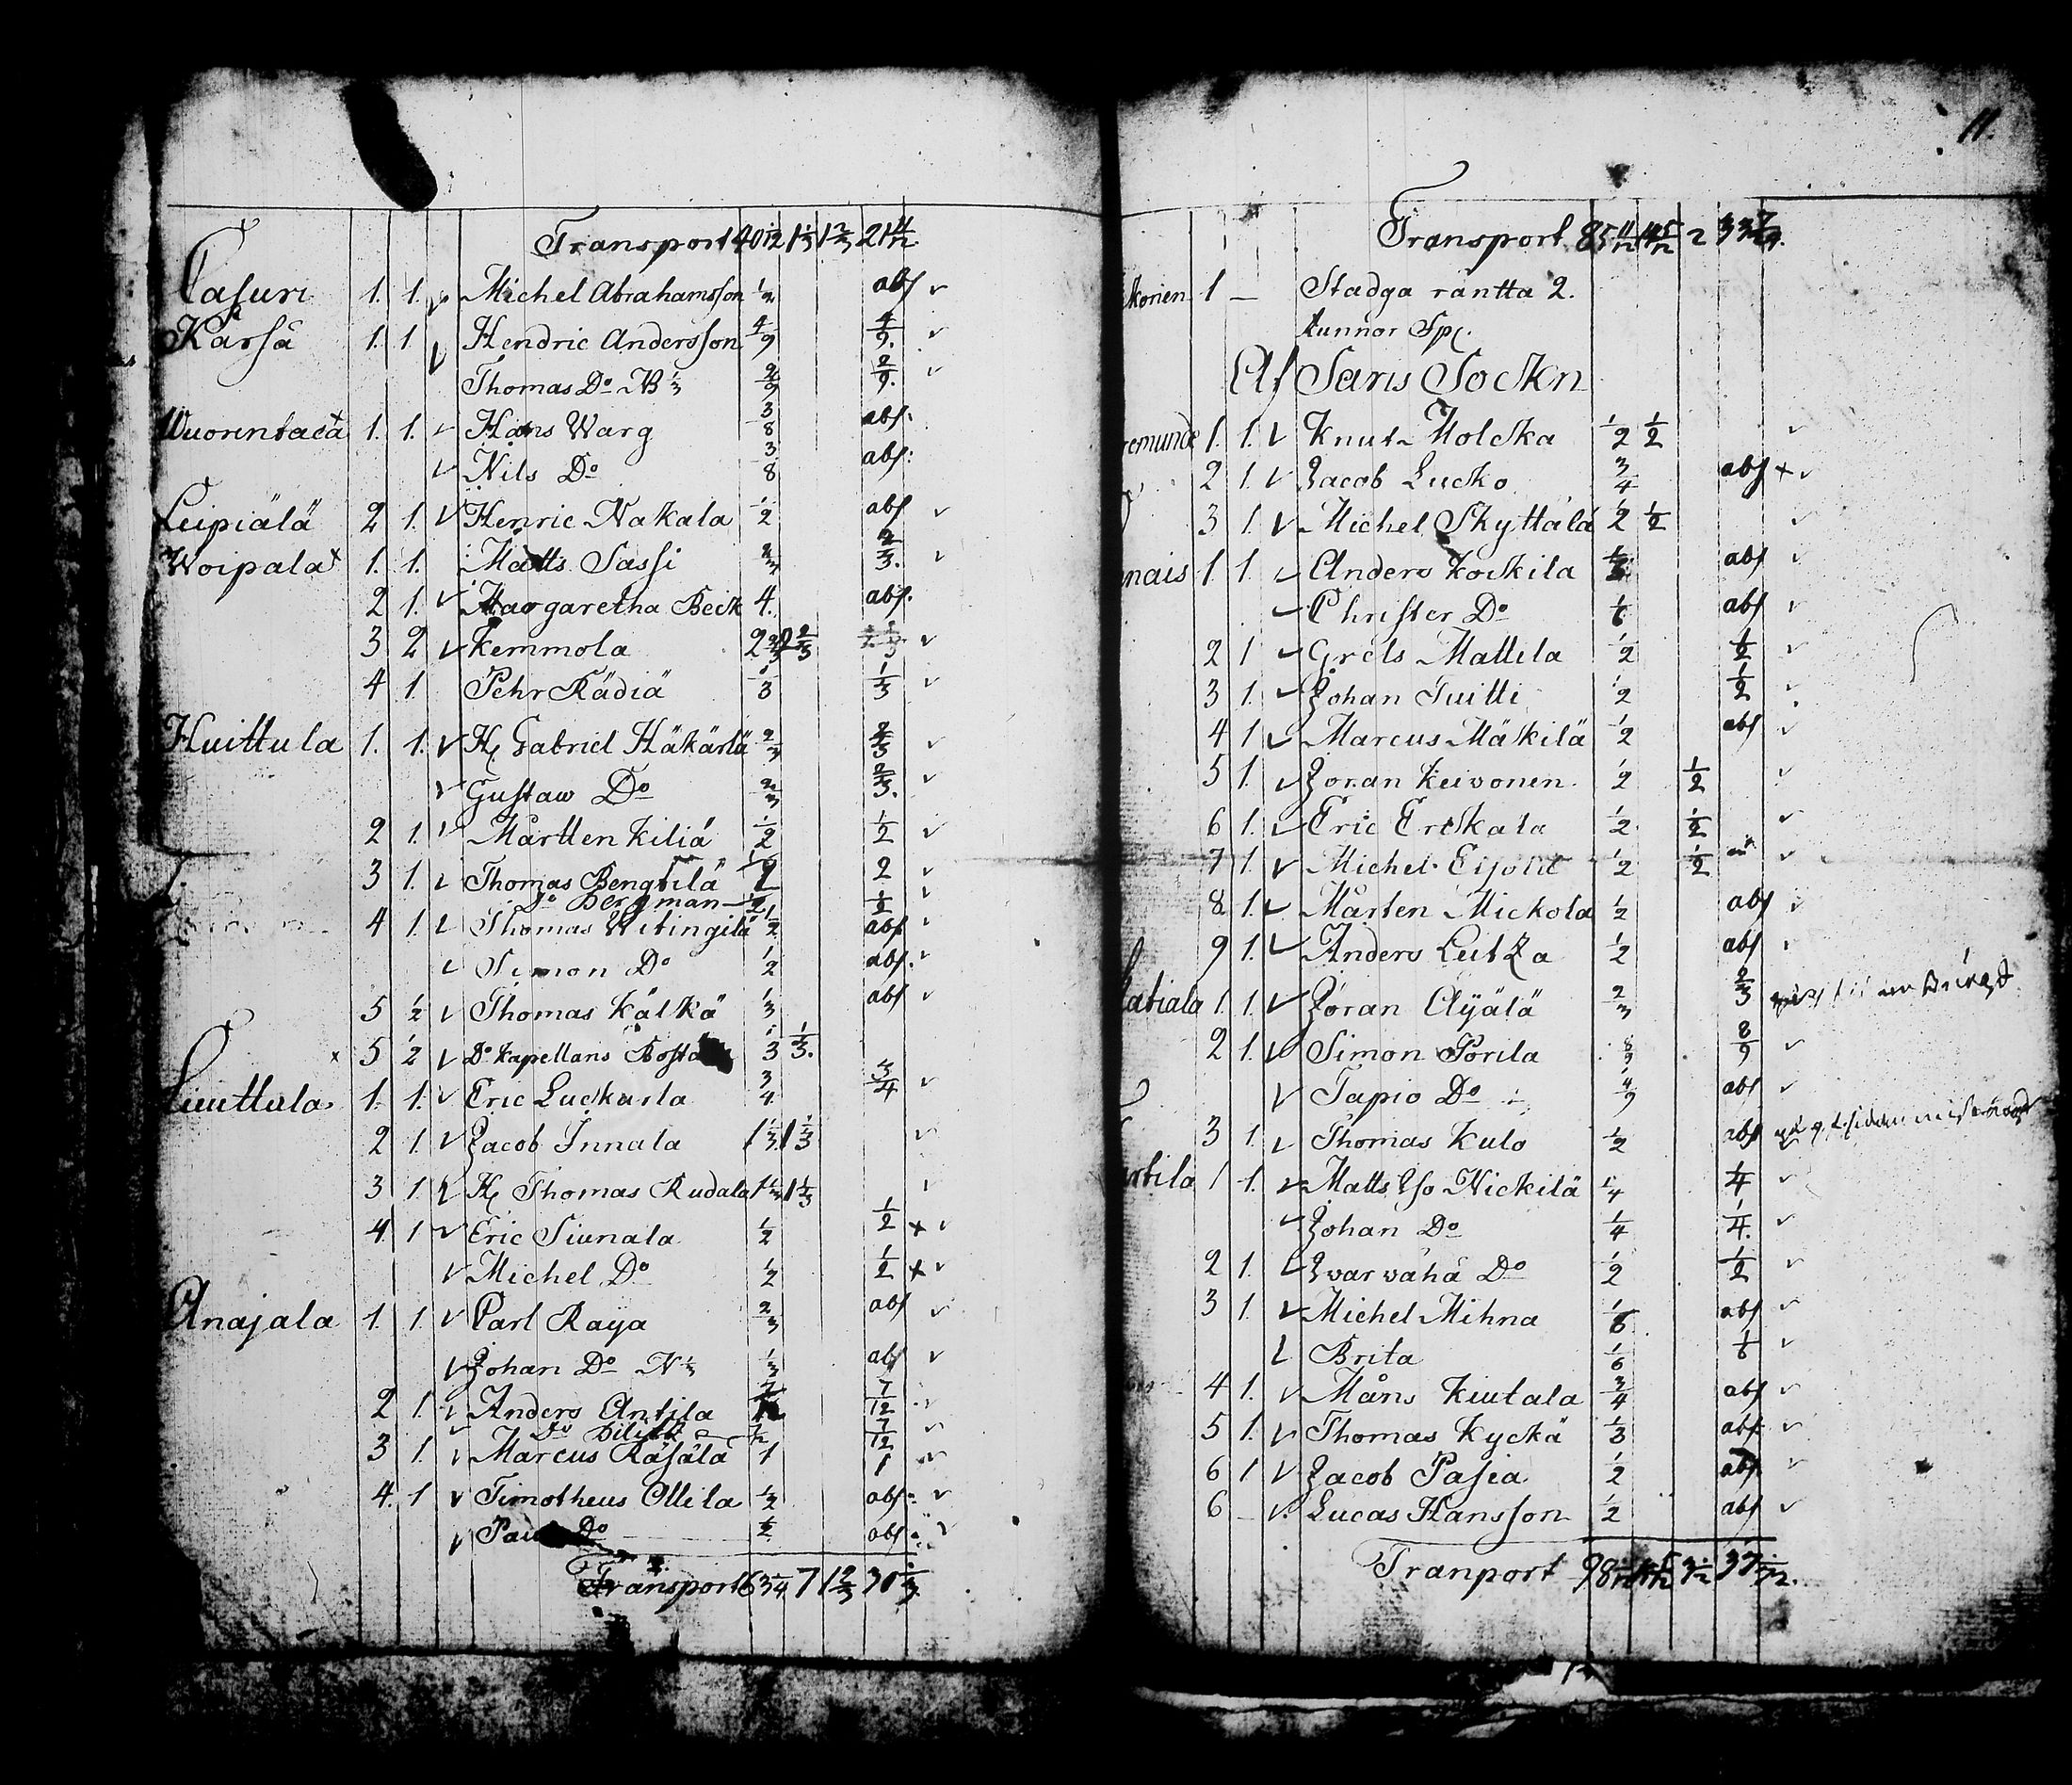 Transport 40 1/12 1 1/3 1 2/3 21 4/12
Casuri 1. 1. Michel Abrahamsson 1/2 abs
Karsä 1. 1. Hendric Andersson 4/9 4/9.
Thomas Do N 1/3 2/9 2/9.
Wuorentaca 1. 1. Hans Warg 3/8 abs:
Nils Do 3/8 abs:
Leipiälä 2 1. Henric Nakala 1/2 abs
Woipala 1. 1. Matts Sassi 2/3 2/3.
2 1. Margaretha Beck 4. abs.
3 2 Kemmola 2 2/3
4 1 Pehr Rädiä 1/3 1/3
Huittula 1. 1. H Gabriel Häkärlä 2/3 2/3
Gustaw Do 2/3 2/3.
2 1. Mårtten Kiliä 1/2 1/2
3 1. Thomas Bengtilä 2 2
Do Bergman 1/2 1/2
4 1. Thomas Witingilä 1/2 abs
Simon Do 1/2 abs.
5 1/2 Thomas Kälkä 1/3 abs
x 5 1/2 Do Kapellans 1/3 1/3.
Liuttula 1. 1. Eric Luckarla 3/4 3/4
2 1. Jacob Innala 1 1/3 1 1/3
3 1. H Thomas Rudala 1 1/3 1 1/3
4 1 Eric Siunala 1/2 1/2 x
Michel Do 1/2 1/2 x
Anajala 1. 1. Carl Raya 2/3 abs
Johan Do N 1/3 1/3 abs
2 1. Anders Antila 7/12 7/12
Do 7/12 7/12
3 1. Marcus Räsälä 1 1
4. 1 Timotheus Ollila 1/2 abs
Do 1/2 abs
Transport 63 1/4 7 1 2/3 30 1/3
11.
Transport 85 11/12 14 5/12 2 33
1 — Stadga räntta 2.
tunnor Sp.
Af Saris Sockn
1. 1. Knut Molcka 1/2 1/2
2 1. Jacob Lucko 3/4 abs x
3 1. Michel Skyttälä 1/2 1/2
nais 1. 1. Anders Kockila abs
Christer Do 1/6 abs
2 1 Grels Mattila 1/2 1/2
3 1. Johan Tuitti 1/2 1/2
4 1 Marcus Mäkilä 1/2 abs
5 1. Joran Keivonen 1/2 1/2
6 1. Eric Erckala 1/2 1/2
7 1. Michel 1/2 1/2
8 1. Mårten Mickola 1/2 abs
9 1. Anders Leitza 1/2 abs
latiala 1. 1. Jöran Äijälä 2/3 2/3
2 1. Simon Porila 8/9 8/9
Tapio Do 4/9 abs
3 1. Thomas Kulo 1/2 abs
rtila 1 1. Matts Nickilä 1/4 1/4
Johan Do 1/4 1/4.
2 1. Iwarwähä Do 1/2 1/2
3 1. Michel Mihna 1/6 abs
Brita 1/6 1/6
4 1. Måns Kiutala 3/4 abs
5 1. Thomas Kyckä 1/3 abs
6 1 Jacob Pasia 1/2 abs
6 — Lucas Hansson 1/2 abs
Tranport 98